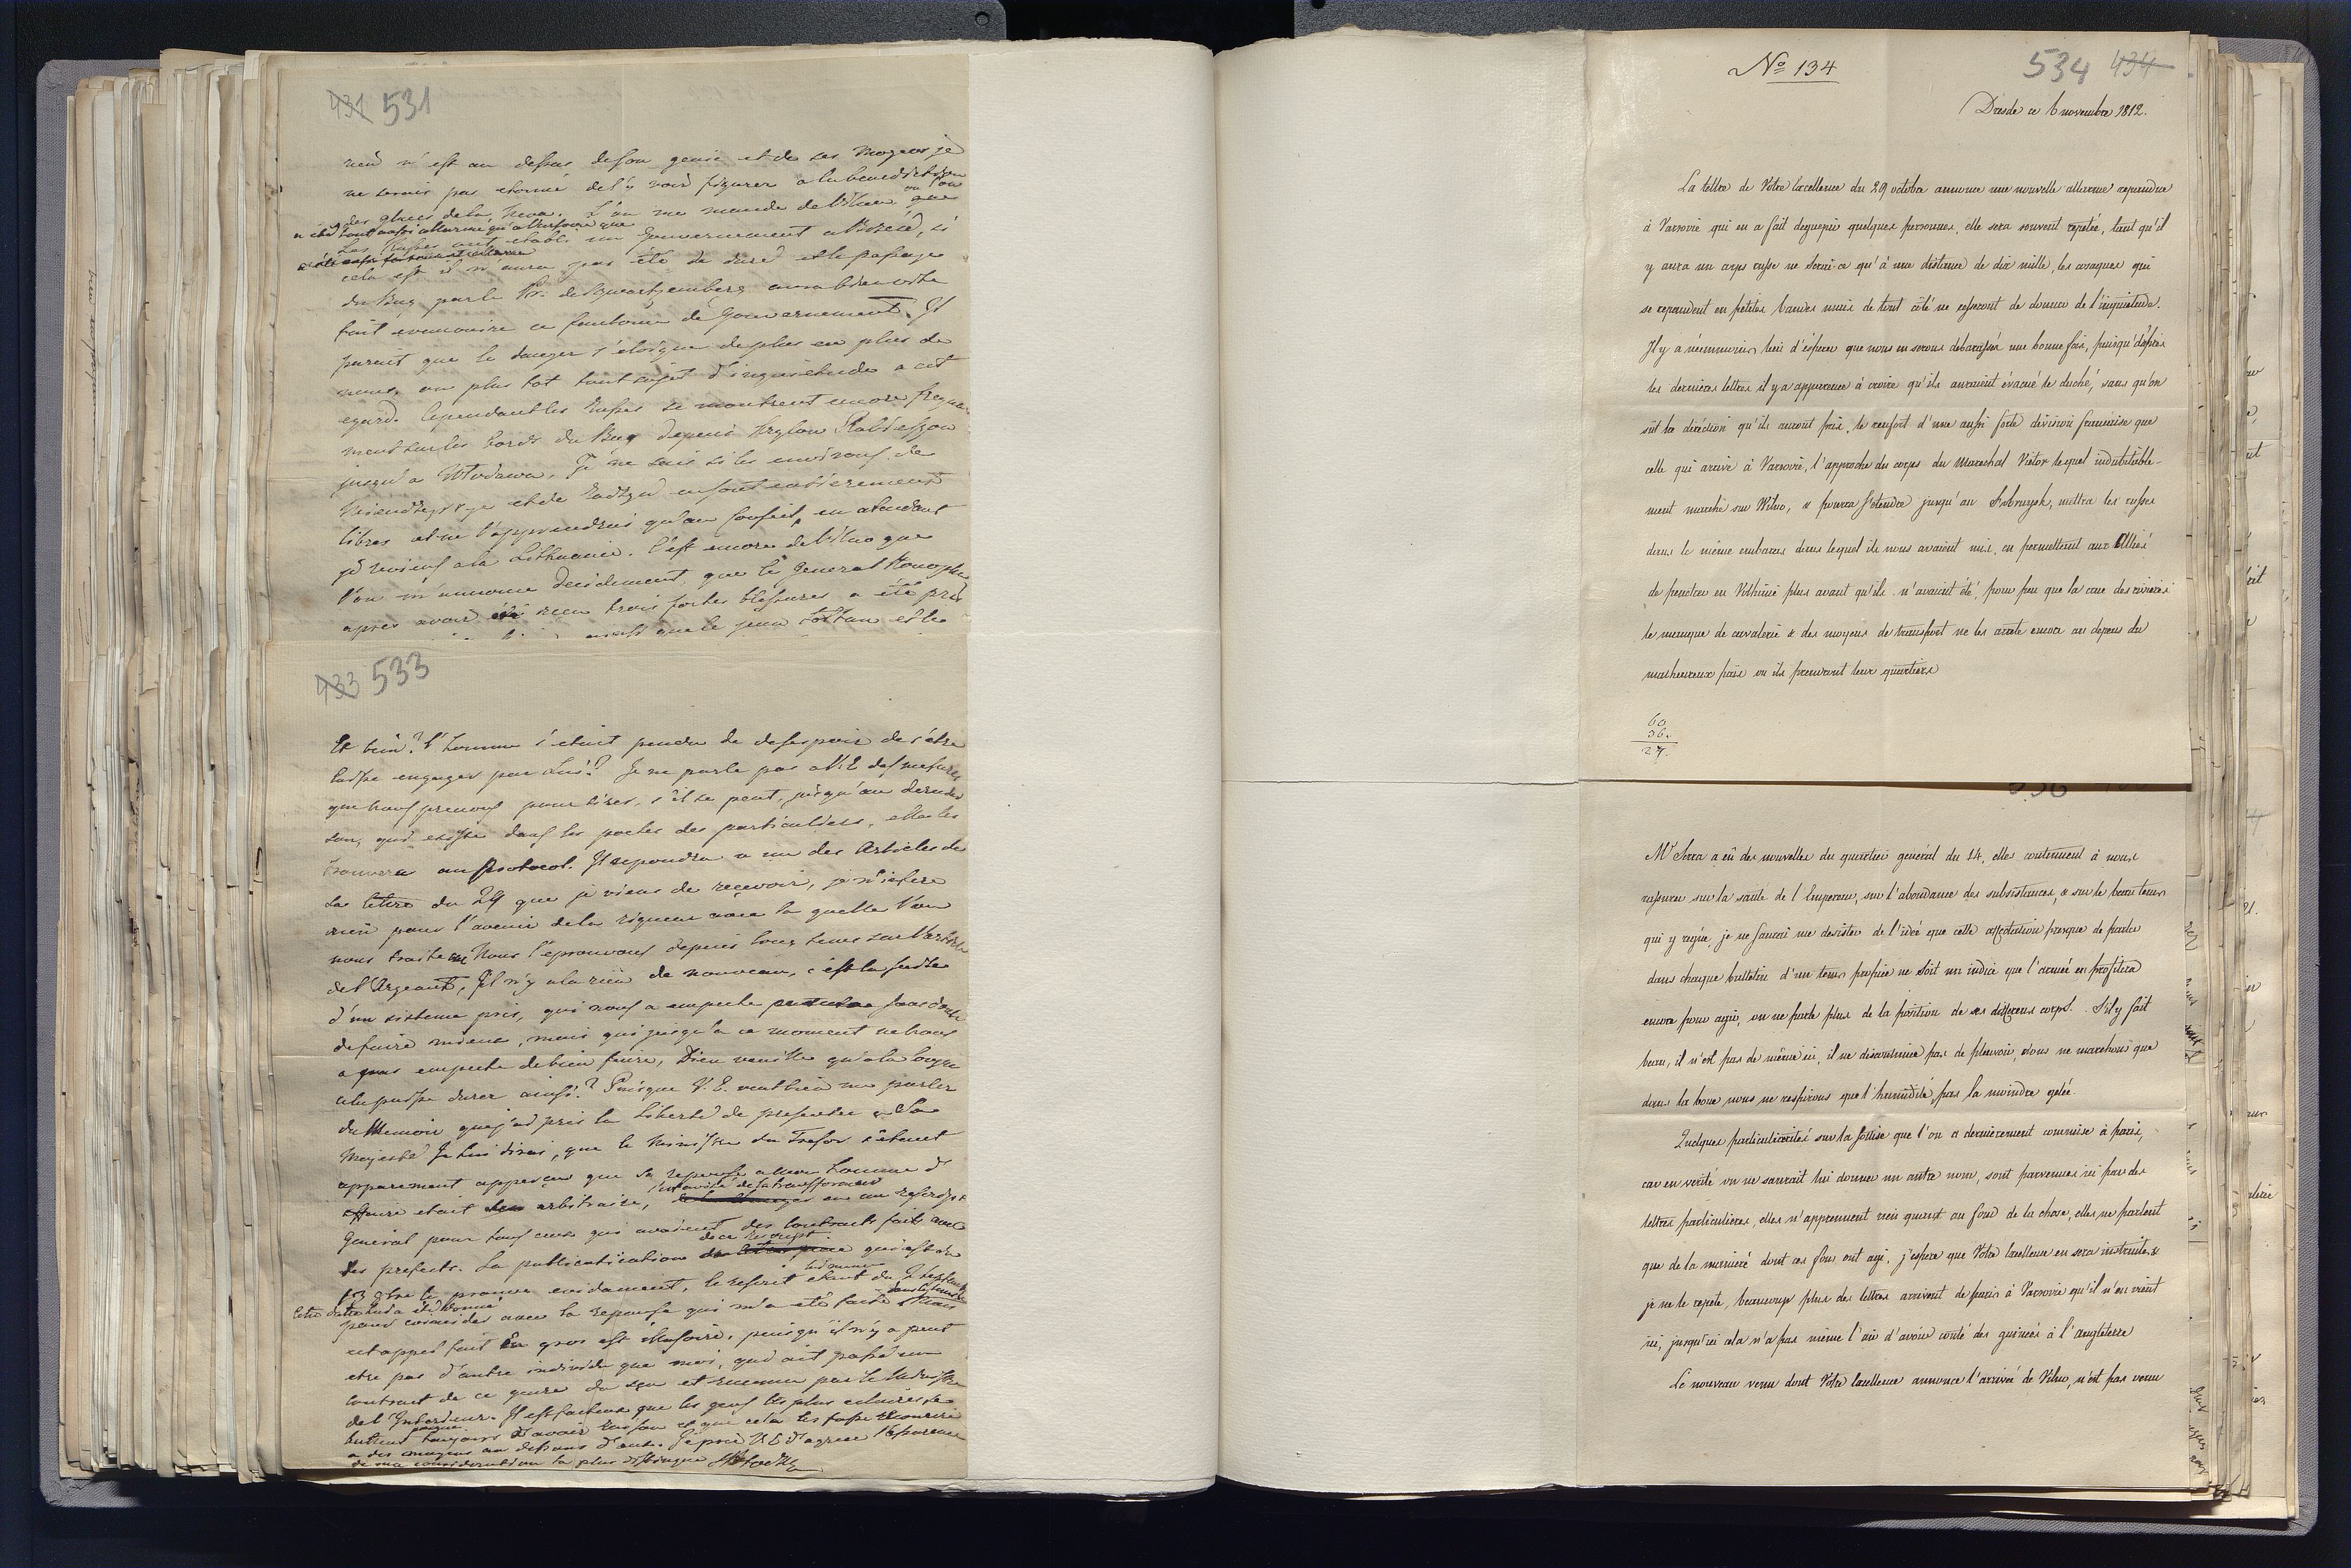 431 531
rien n'est au dessus de son genie et de ses moyens je
ne serois pas etonné de l'y voir figurer a la benediction
des glaces de la Neva. L'on me mande de Vilna que
Les Russes ont etabli un Gouvernement a
cela est il n'aura pas été de durée et le passage
du Bug par le Pr. de Schwartzenberg aura bien vite
fait evanouir ce fantome de Gouvernement. Il
paroit que le danger s'eloigne de plus en plus de
nous, ou plus tot tout sujet d'inquietude a cet
egard. Cependant les Russes se montrent encore
ment sur les bords du Bug depuis Krylow
jusqu'a Wlodawa. Je ne sais si les environs de
et de en sont entierement
libres et ne l'apprendrai qu'au Conseil, en attendant
je reviens a la Lithuanie. C'est encore de Vilna que
l'on m'annonce decidement, que le General
apres avoir reçu trois fortes blessures a été pris
433 533
Et bien? l'homme s'etoit pendu de desespoir de s'être
laissé engager par Lui? Je ne parle pas a V.E. des mesures
que nous prenons pour tirer, s'il se peut, jusqu'au dernier
sou, qui existe dans les poches des particuliers, elle les
trouvera au Protocol. Il repondra a un des Articles de
sa lettre du 29 que je viens de reçevoir, je n'infere
rien pour l'avenir de la rigueur avec la quelle l'on
nous traite. Nous l'eprouvons depuis long tems sur l'article
de l'Argeant, Il n'y a la rien de nouveau, c'est la suite
d'un sisteme pris, qui nous a empeché sans doute
de faire mieux, mais qui jusqu'a ce moment ne nous
a pas empeché de bien faire, Dieu veuille qu'a la longue
cela puisse durer ainsi? Puisque V.E. veut bien me parler
du Memoire que j'ai pris la Liberté de presenter a Sa
Majesté Je Lui dirai, que le Ministre du Tresor s'etant
apparement apperçu que sa reponse a un homme d'
affaire etait arbitraire, s'est avisé de la transformer en un rescript
General pour tous ceux qui avoient des Contracts faits avec
les prefects. La publication de ce Rescript qui est du
8bre le prouve evidament, le rescrit
pour coincider avec la reponse qui m'a eté faite Mais
cet appel fait en gros est illusoire, puisqu'il n'y a peut
etre pas d'autre individu que moi, qui ait passé un
contract de ce genre du sçu et reconnu par le Ministre
de l'Interieur. Il est facheux que les gens les plus eclairés se
butent toujours d'avoir Raison et que cela les fasse recourir
a des moyens au dessous d'eux. Je prie V.E. d'agreer l'assurence
de ma consideration la plus distinguée
No 134
534 434
Dresde ce 6 novembre 1812.
La lettre de Votre Excellence du 29 octobre annonce une nouvelle allarme repandue
à Varsovie qui en a fait deguerpir quelques personnes, elle sera souvent repetée, tant qu'il
y aura un corps russe ne serai-ce qu'à une distance de dix mille, les cosaques qui
se repandent en petites bandes mais de tout côté ne cesseront de donner de l'inquietude.
Il y a néanmoins lieu d'esperer que nous en serons débarassés une bonne fois, puisqu'd'après
les dernieres lettres il y a apparence à croire qu'ils auraient évacué le duché, sans qu'on
sût la direction qu'ils auront prise, le renfort d'une aussi forte division française que
celle qui arrive à Varsovie, l'approche du corps du Marechal Victor lequel indubitable-
ment marche sur Wilno, & pourra s'étendre jusqu'au Bobruysk, mettra les russes
dans le même embaras dans lequel ils nous avaient mis, en permettant aux Alliés
de penetrer en Volhinie plus avant qu'ils n'avaient été, pour peu que la crue des rivieres
le manque de cavalerie & des moyens de transport ne les arrete encore au depens du
malheureux païs où ils prendront leur quartiers
60
36.
27.
Mr Serra a eû des nouvelles du quartier général du 14, elles continuent à nous
rassurer sur la santé de l'Empereur, sur l'abondance des subsistances, & sur le beau tems
qui y regne, je ne saurai me desister de l'idée que cette affectation presque de parler
dans chaque bulletin d'un tems propice ne soit un indice que l'armée en profitera
encore pour agir, on ne parle plus de la position de ses differens corps. S'il y fait
beau, il n'est pas de même ici, il ne discontinue pas de pleuvoir, nous ne marchons que
dans la boue nous ne respirons que l'humidité, pas la moindre gelée.
Quelques particularités sur la sottise que l'on a dernierement commise à paris,
car en verité on ne saurait lui donner un autre nom, sont parvenues ici par des
lettres particulieres, elles n'apprennent rien quant au fond de la chose, elles ne parlent
que de la maniere dont ces fous ont agi, j'espere que Votre Excellence en sera instruite, &
je ne le repete, beaucoup plus des lettres arrivent de paris à Varsovie qu'il n'en vient
ici, jusqu'ici cela n'a pas même l'air d'avoir couté des guinées à l'angleterre
Le nouveau venu dont Votre Excellence annonce l'arrivée de Vilno, n'est pas venu